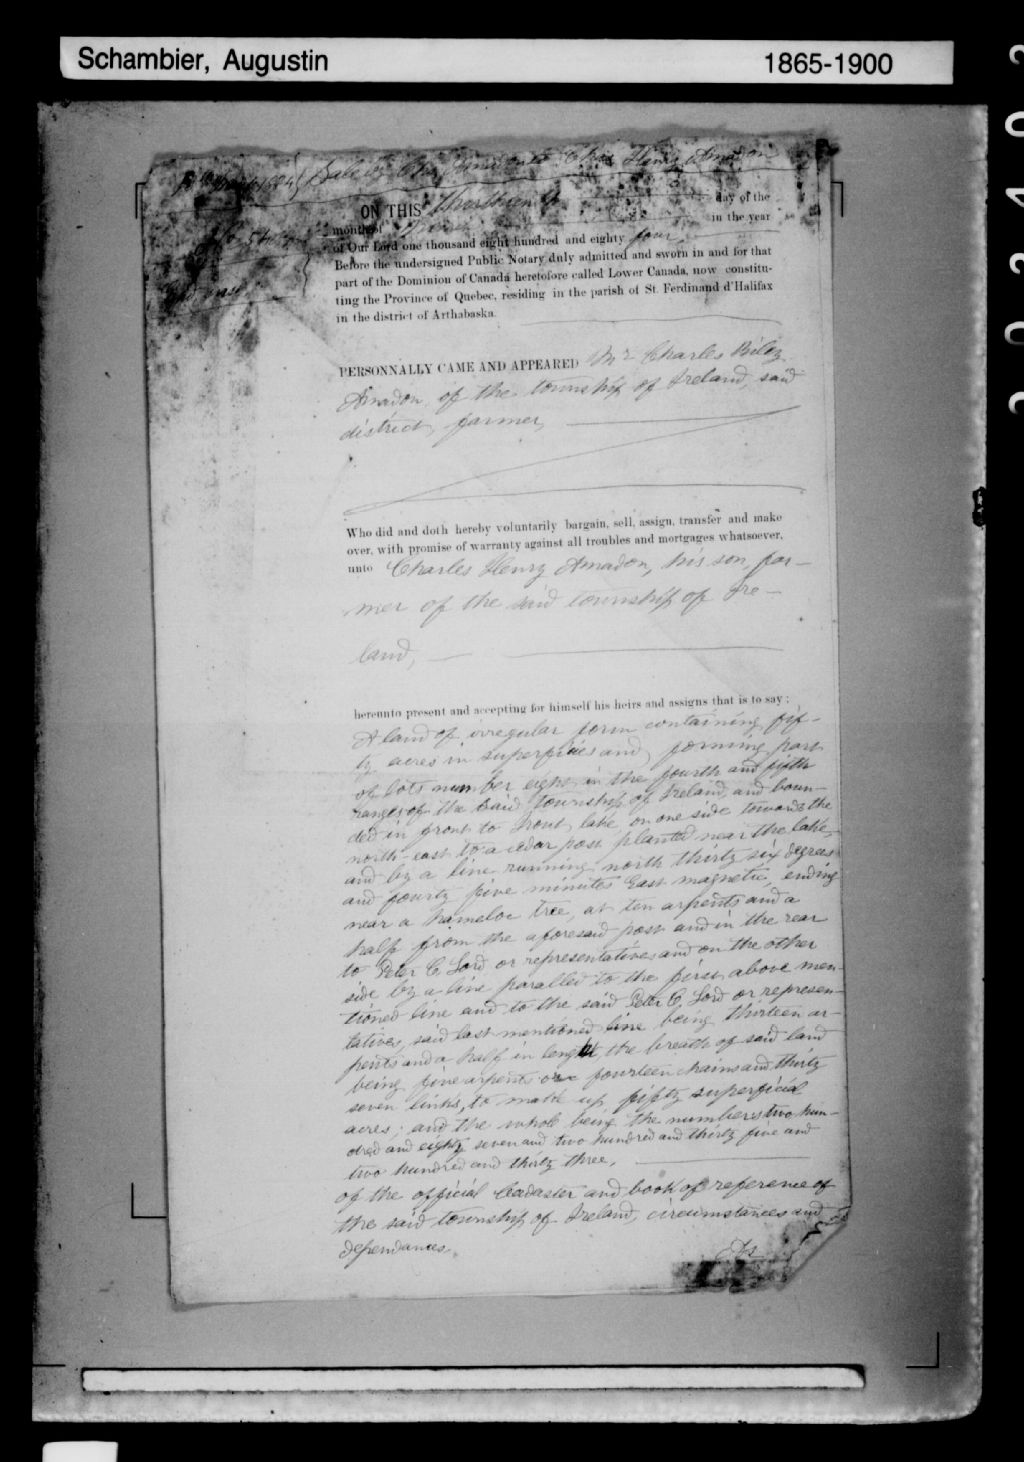 Schambier, Augustin 1865-1900
Sale by Chs Amadon to Chas Henry Amadon
ON THIS thirtheen day of the
month of in the year
of Our Lord one thousand eight hundred and eighty four,
Before the undersigned Public Notary duly admitted and sworn in and for that
part of the Dominion of Canada heretofore called Lower Canada, now constitu-
ting the Province of Quebec, residing in the parish of St. Ferdinand d'Halifax
in the district of Arthabaska.
PERSONNALLY CAME AND APPEARED Mr Charles Riley
Amadon, of the township of Ireland, said
district, farmer,
Who did and doth hereby voluntarily bargain, sell, assign, transfer and make
over, with promise of warranty against all troubles and mortgages whatsoever,
unto Charles Henry Amadon, his son, far-
mer of the said township of Ire-
land,
hereunto present and accepting for himself his heirs and assigns that is to say:
A land of irregular form containing fif-
ty acres in superficies and forming part
of lots number eight in the fourth and fifth
ranges of the said township of Ireland, and boun-
ded in front to Trout lake on one side towards the
north-east to a cedar post planted near the lake,
and by a line running north thirty six degrees
and fourty five minutes East magnetic, ending
near a hameloc tree, at ten arpents and a
half from the aforesaid post and in the rear
to Peter C. Lord or representatives and on the other
side by a line paralled to the first above men-
tioned line and to the said Peter C. Lord or represen-
tatives, said last mentioned line being thirteen ar-
pents and a half in lenght the breath of said land
being five arpents or fourteen chains and thirty
seven links, to make up fifty superficial
acres; and the whole being the numbers two hun-
dred and eighty seven and two hundred and thirty five and
two hundred and thirty three,
of the official Cadaster and book of reference of
the said township of Ireland, circumstances and
dependances.